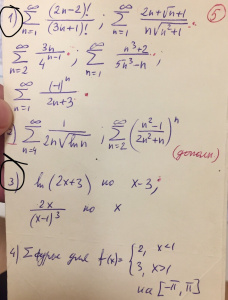 1) ∑_{n=1}^{∞} (2n-2)!/(3n+1)! ; ∑_{n=1}^{∞} (2n+√n+1)/(n√(n²+1)) ⑤
∑_{n=2}^{∞} 3n/4^{n-1} ; ∑_{n=1}^{∞} (n³+2)/(5n³-n) ;
∑_{n=1}^{∞} (-1)^n/(2n+3) .
2) ∑_{n=4}^{∞} 1/(2n√(ln n)) ; ∑_{n=2}^{∞} ((n²-1)/(2n²+n))^n
(допалн)
3) ln(2x+3) по x-3,
2x/(x-1)³ по x
4) ∑ Фурье для f(x)= { 2, x<1
3, x>1
на [-π, π]